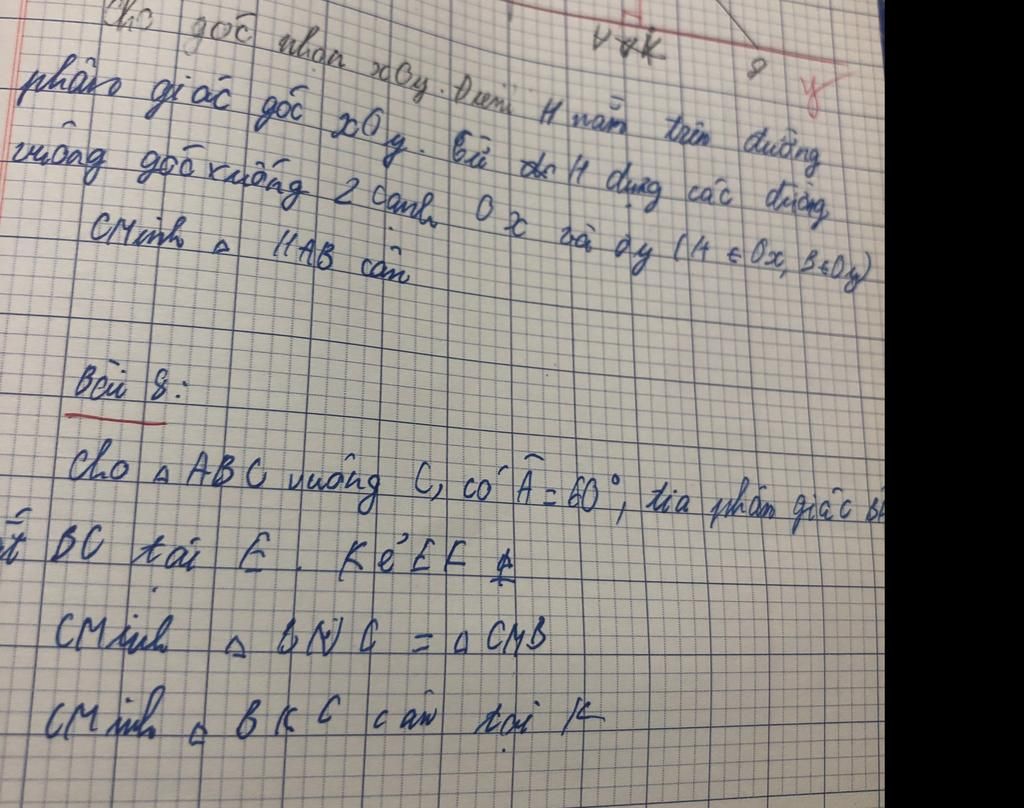 Cho góc nhọn xOy. Điểm H nằm trên đường
phân giác góc xOy. Từ H dựng các đường
vuông góc xuống 2 cạnh Ox và Oy (A ∈ Ox, B ∈ Oy)
CMinh △ HAB cân
Bài 8:
Cho △ ABC vuông C, có Â = 60°, tia phân giác
BC tại E. Kẻ EK
CMinh △ BNC = △ CMB
CMinh △ BKC cân tại K